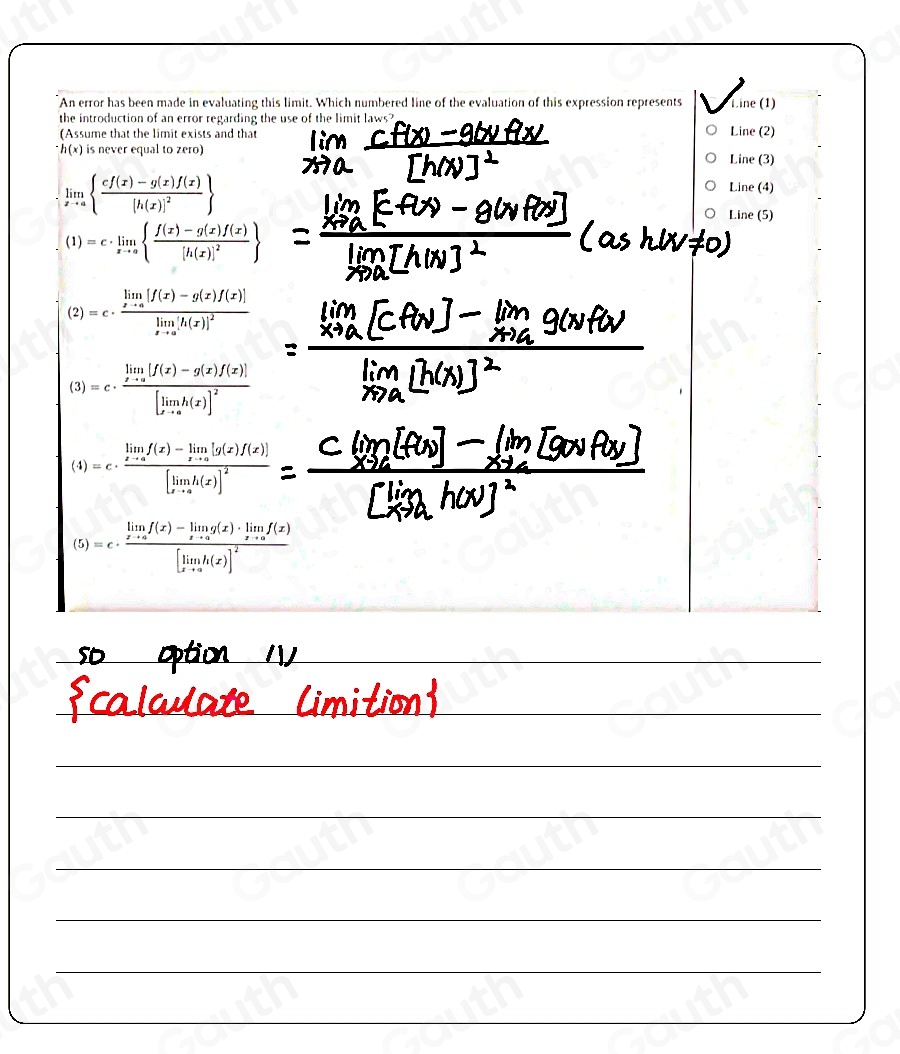 An error has been made in evaluating this limit. Which numbered line of the evaluation of this expression represents
the introduction of an error regarding the use of the limit laws?
(Assume that the limit exists and that
h(x) is never equal to zero)
lim x→a { cf(x) − g(x)f(x) / [h(x)]² }
(1) = c · lim x→a { f(x) − g(x)f(x) / [h(x)]² }
(2) = c · lim x→a [f(x) − g(x)f(x)] / lim x→a [h(x)]²
(3) = c · lim x→a [f(x) − g(x)f(x)] / [lim x→a h(x)]²
(4) = c · lim x→a f(x) − lim x→a [g(x)f(x)] / [lim x→a h(x)]²
(5) = c · lim x→a f(x) − lim x→a g(x) · lim x→a f(x) / [lim x→a h(x)]²
lim x→a cf(x) − g(x)f(x) / [h(x)]²
= lim x→a [cf(x) − g(x)f(x)] / lim x→a [h(x)]² (as h(x)≠0)
= lim x→a [cf(x)] − lim x→a g(x)f(x) / lim x→a [h(x)]²
= c lim x→a [f(x)] − lim x→a [g(x)f(x)] / [lim x→a h(x)]²
Line (1)
Line (2)
Line (3)
Line (4)
Line (5)
so option (1)
{calculate limition}
Gauth